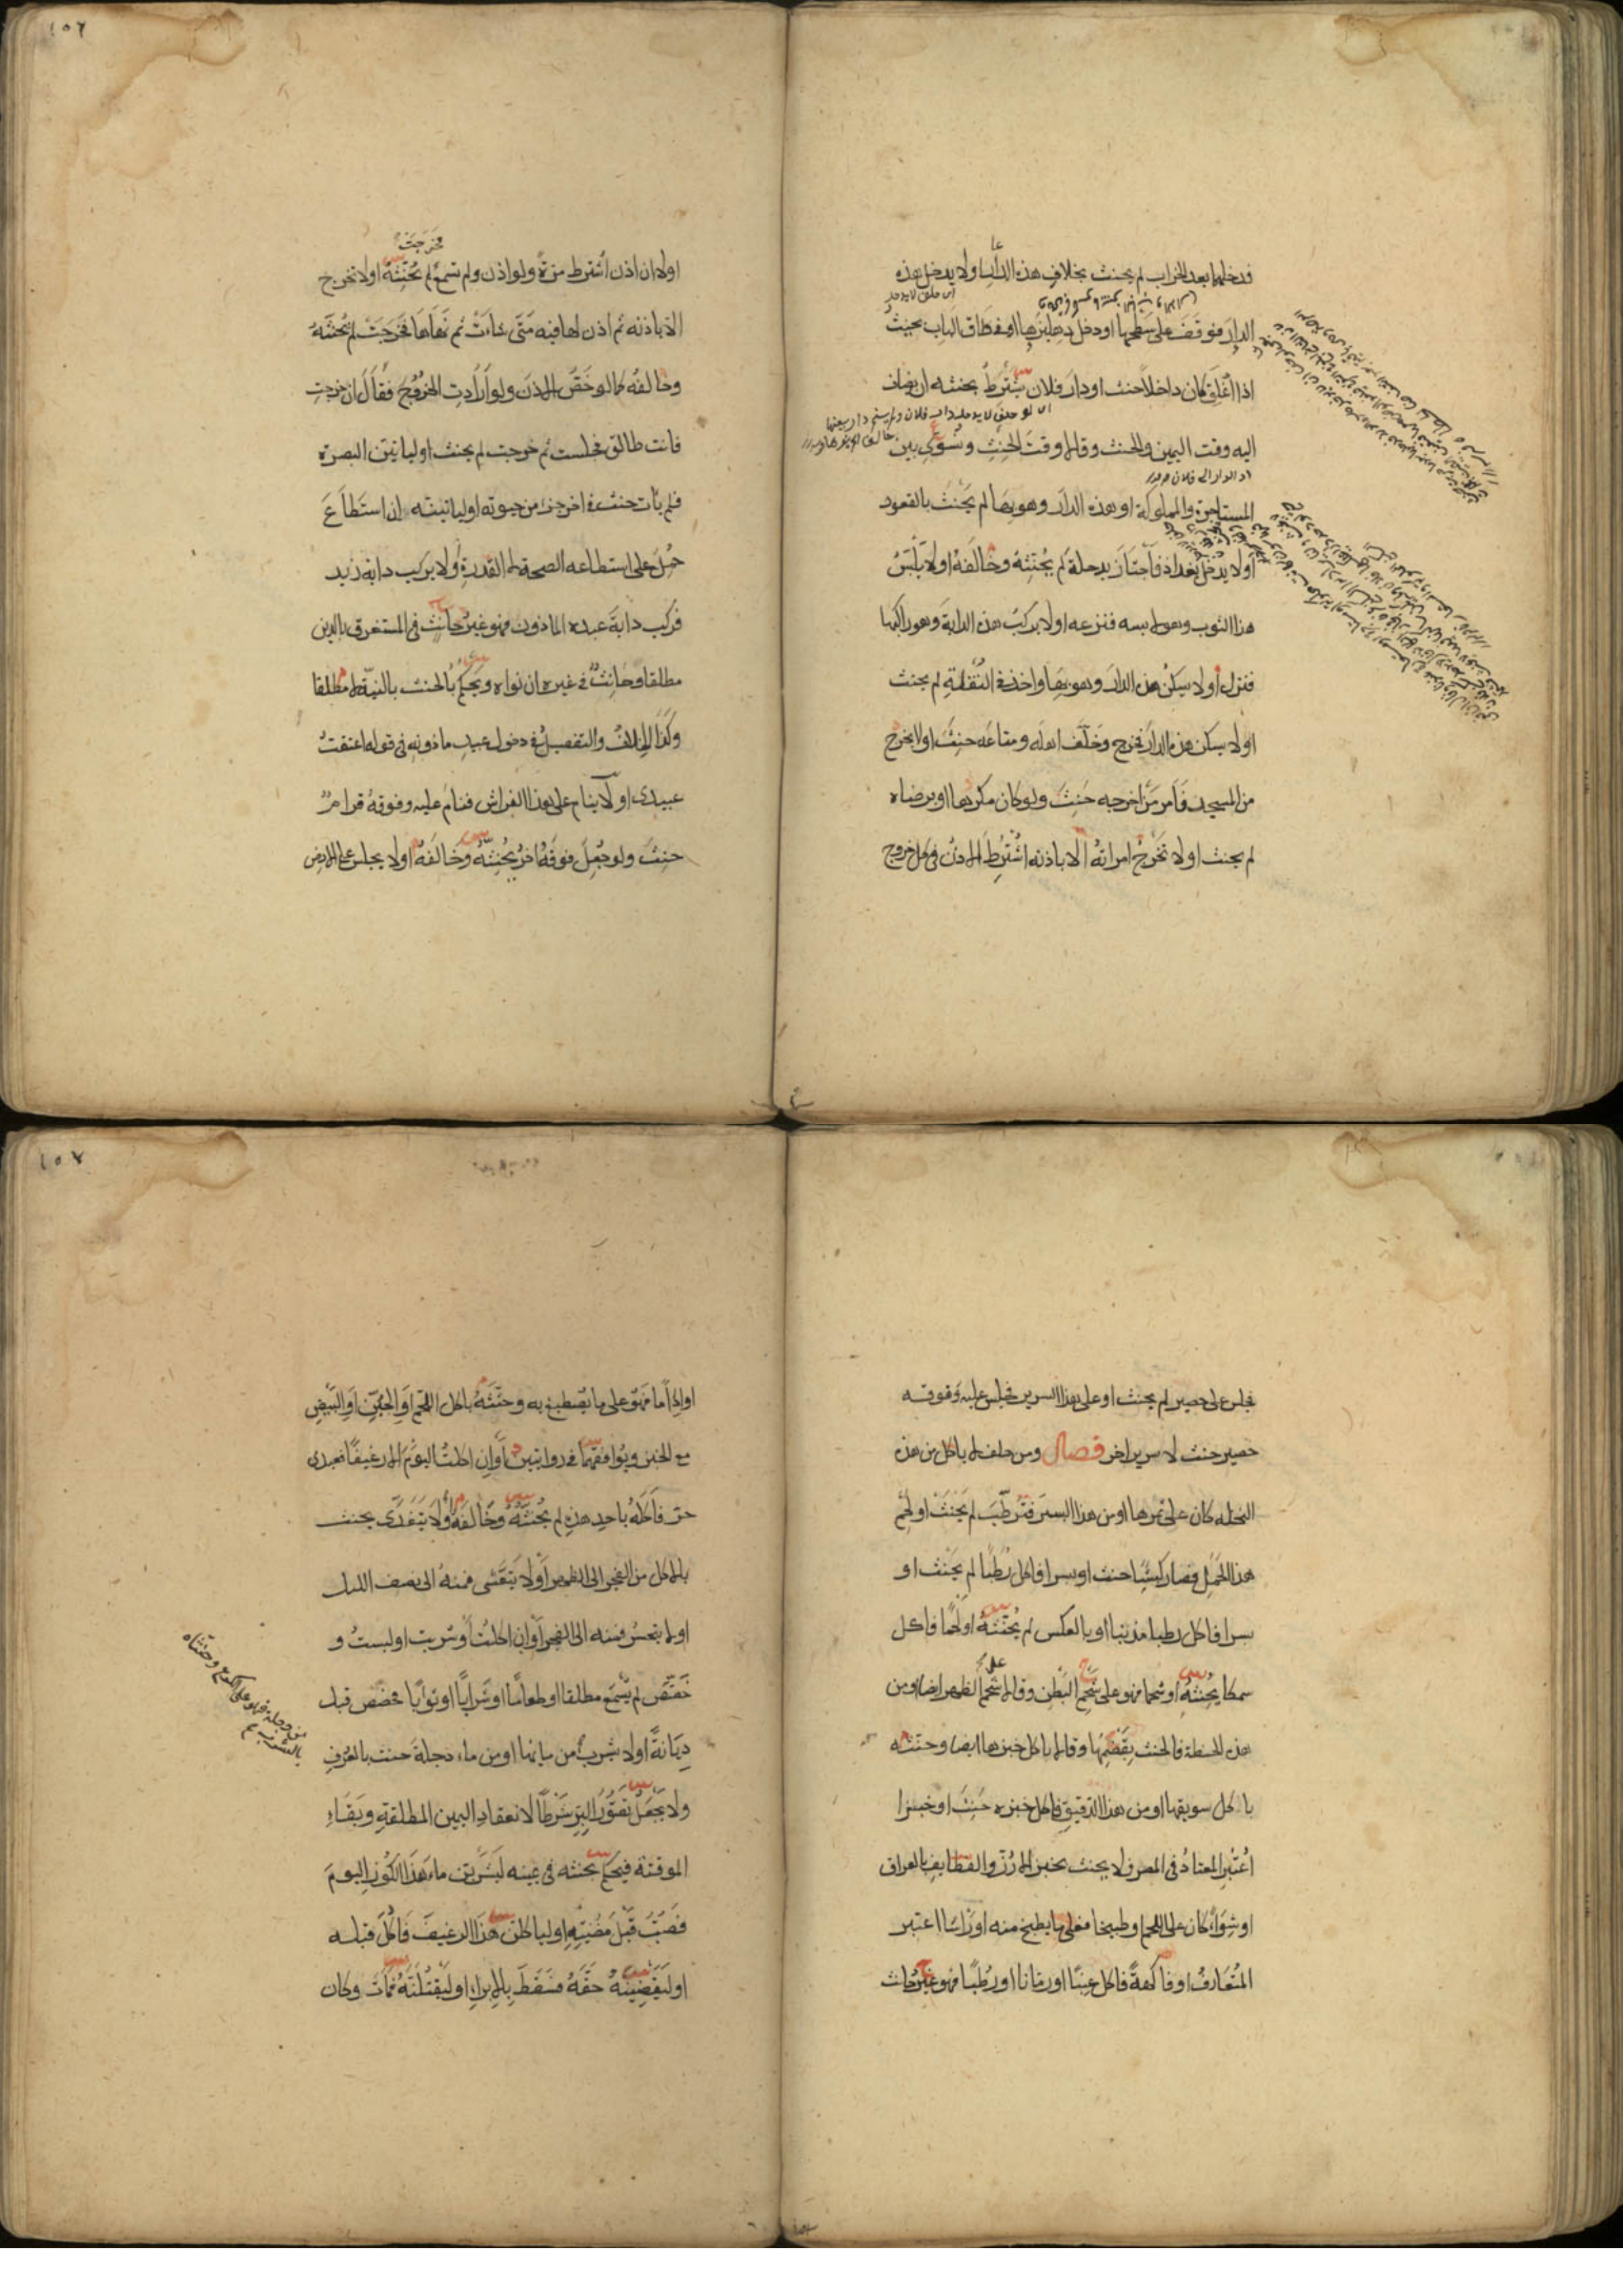 فدخلها بعد الخراب لم يحنث بخلاف هذه الدار اولا يدخل هذه
الدار فوقف على سطحها او دخل دهليزها او في طاق الباب بحيث
اذا اغلق كان داخلا حنث او دار فلان يشترط بحنثه ان يضاف
اليه وقت اليمين والحنث وقالا وقت الحنث ونسوي بين
المستاجرة والمملوكة او هذه الدار وهو بها لم يحنث بالقعود
اولا يدخل بغداد فاجتاز بدجلة لم يحنثه وخالفه اولا يلبس
هذا الثوب وهو لابسه فنزعه اولا يركب هذه الدابة وهو راكبها
فنزل اولا يسكن هذه الدار وهو بها واخذ في النقلة لم يحنث
اولا يسكن هذه الدار فخرج وخلف اهله ومتاعه حنث اولا يخرج
من المسجد فامر من اخرجه حنث ولو كان مكرها او برضاه
لم يحنث اولا تخرج امراته الا باذنه اشترط الاذن في كل خروج
١٥٦
فخرجت
اولا ان اذن اشترط مرة ولو اذن ولم تسمع لم يحنثه اولا تخرج
الا باذنه ثم اذن لها فيه متى شاءت ثم نهاها فخرجت لم يحنثه
وخالفه كما لو خص الاذن ولو ارادت الخروج فقال ان خرجت
فانت طالق فجلست ثم خرجت لم يحنث او لياتين البصرة
فلم يات حنث في اخر جزء من حيوته او لياتينه ان استطاع
حمل على استطاعه الصحة لا القدرة اولا يركب دابة زيد
فركب دابة عبده الماذون فهو غير حانث في المستغرق بالدين
مطلقا وحانث في غيره ان نواه ويحكم بالحنث بالنية لا مطلقا
وكذا الخلاف والتفصيل في دخول عبيد ماذونه في قوله اعتقت
عبيدى اولا ينام على هذا الفراش فنام عليه وفوقه قرام
حنث ولو جعل فوقه اخر يحنثه وخالفه اولا يجلس على الارض
فجلس على حصير لم يحنث او على هذا السرير فجلس عليه وفوقه
حصير حنث لا سرير اخر فصل ومن حلف لا ياكل من هذه
النخلة كان على ثمرها او من هذا البسر فترطب لم يحنث او لحم
هذا الحمل فصار كبشا حنث او بسرا فاكل رطبا لم يحنث او
بسرا فاكل رطبا مذنبا او بالعكس لم يحنثه او لحما فاكل
سمكا يحنثه او شحما فهو على شحم البطن وقالا شحم الظهر ايضا او من
هذه الحنطة فالحنث بقضمها وقالا باكل خبزها ايضا وحنثه
باكل سويقها او من هذا الدقيق فاكل خبزه حنث او خبزا
اعتبر المعتاد في المصر فلا يحنث بخبز الارز والقطايف بالعراق
او شواء كان على اللحم او طبيخا فعلى ما يطبخ منه او راسا اعتبر
المتعارف او فاكهة فاكل عنبا او رمانا او رطبا فهو غير حانث
١٥٧
او اداما فهو على ما يصطبغ به وحنثه باكل اللحم او الجبن او البيض
مع الخبز ويوافقهما في روايتين او ان اكلت اليوم الا رغيفا فعبدى
حر فاكله باحد هذه لم يحنثه وخالفه اولا يتغدى يحنث
بالاكل من الفجر الى الظهر اولا يتعشى فمنه الى نصف الليل
اولا يتسحر فمنه الى الفجر او ان اكلت او شربت او لبست و
خصص لم يسمع مطلقا او طعاما او شرابا او ثوبا فخصص قبل
ديانة اولا يشرب من مائها او من ماء دجلة حنث بالغرف
من دجلة فهو على الكرع وحنثاه
بالشرب
ولا يجعل تصور البر شرطا لانعقاد اليمين المطلقة وبقاء
الموقتة فيحكم بحنثه في يمينه ليشربن ماء هذا الكوز اليوم
فصب قبل مضيه او لياكلن هذا الرغيف فاكل قبله
او ليقضينه حقه فسقط بالابراء او ليقتلنه فمات وكان